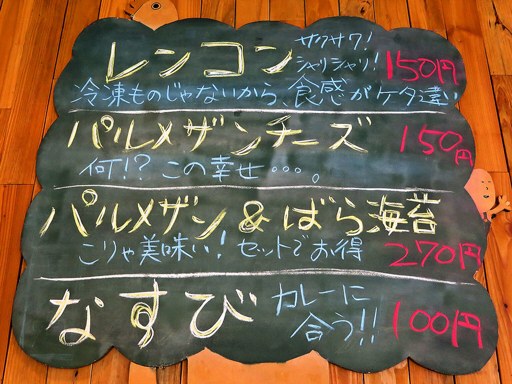 レンコン サクサク! シャリシャリ! 150円
冷凍ものじゃないから、食感がケタ違い
パルメザンチーズ 150円
何!? この幸せ・・・。
パルメザン&ばら海苔
こりゃ美味い! セットでお得 270円
なすび カレーに合う!! 100円